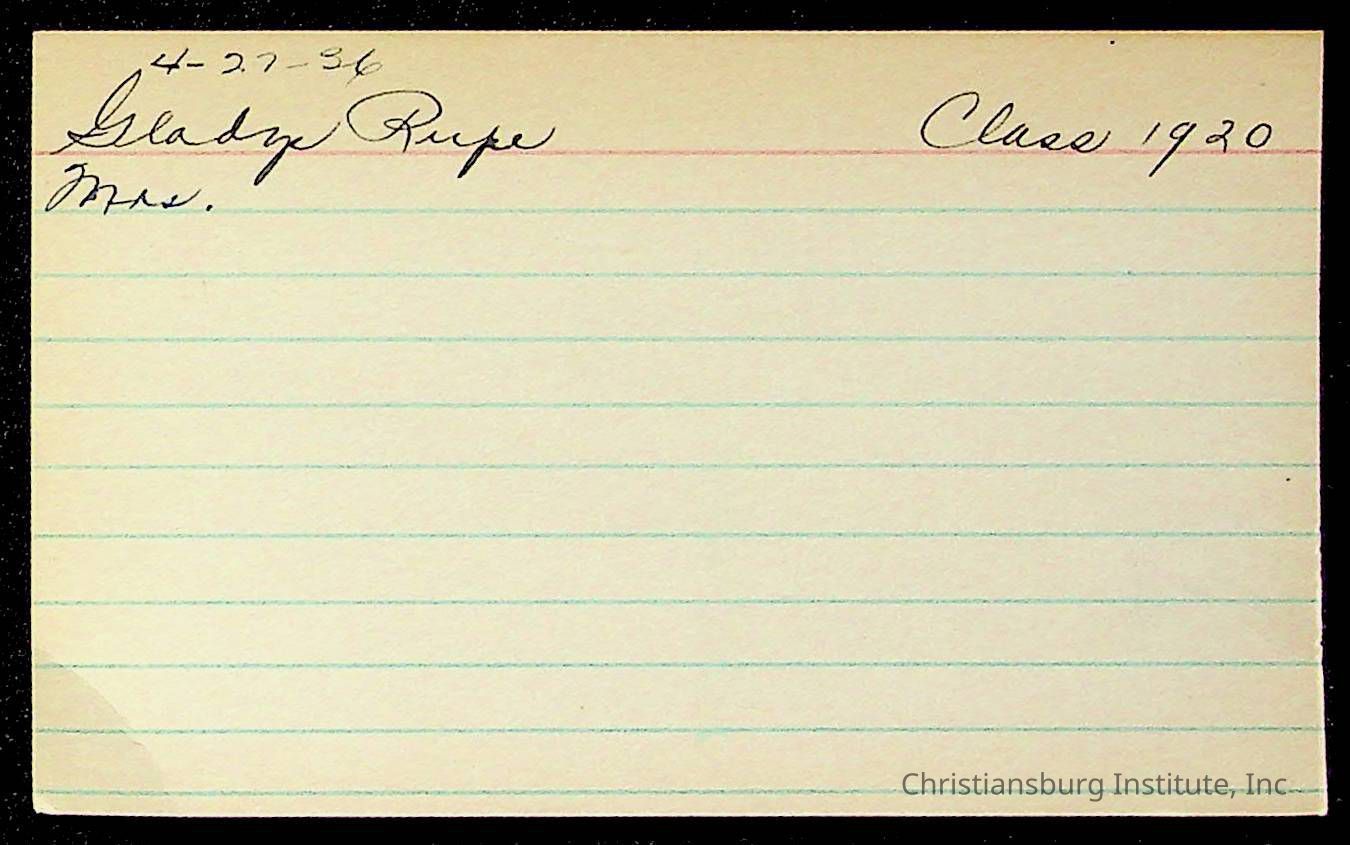 4-27-36
Gladys Rupe Class 1920
Mrs.
Christiansburg Institute, Inc